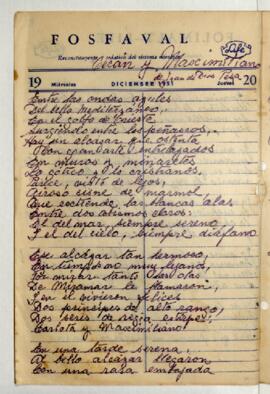 FOSFAVAL
Reconstituyente y sedativo del sistema nervioso
y Maximiliano
de Juan de Dios Peza
19 Miércoles DICIEMBRE 1951 Jueves 20
Entre las ondas azules
Del bello Mediterráneo,
En el golfo de Trieste
Surgiendo entre los peñascos,
Hay un alcázar que ostenta
Con gran arte entrelazados
En muros y minaretes
Lo gótico y lo cristiano.
Parece, visto de lejos,
Airoso cisne de mármol
Que extiende las blancas alas
Entre dos abismos claros:
El del mar, siempre sereno,
Y el del cielo, siempre diáfano
Ese alcázar tan hermoso,
En tiempo no muy lejano,
Por mirar tanto las olas
De Miramar le llamaron,
Y en él vivieron felices
Dos príncipes de alto rango,
Dos seres de regia estirpe:
Carlota y Maximiliano
En una tarde serena,
Al bello alcázar llegaron
Con una rara embajada